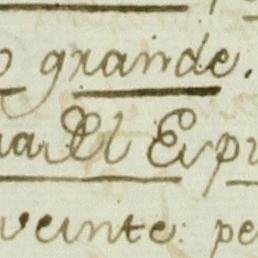 o grande.
ua El Espi
veinte: pe